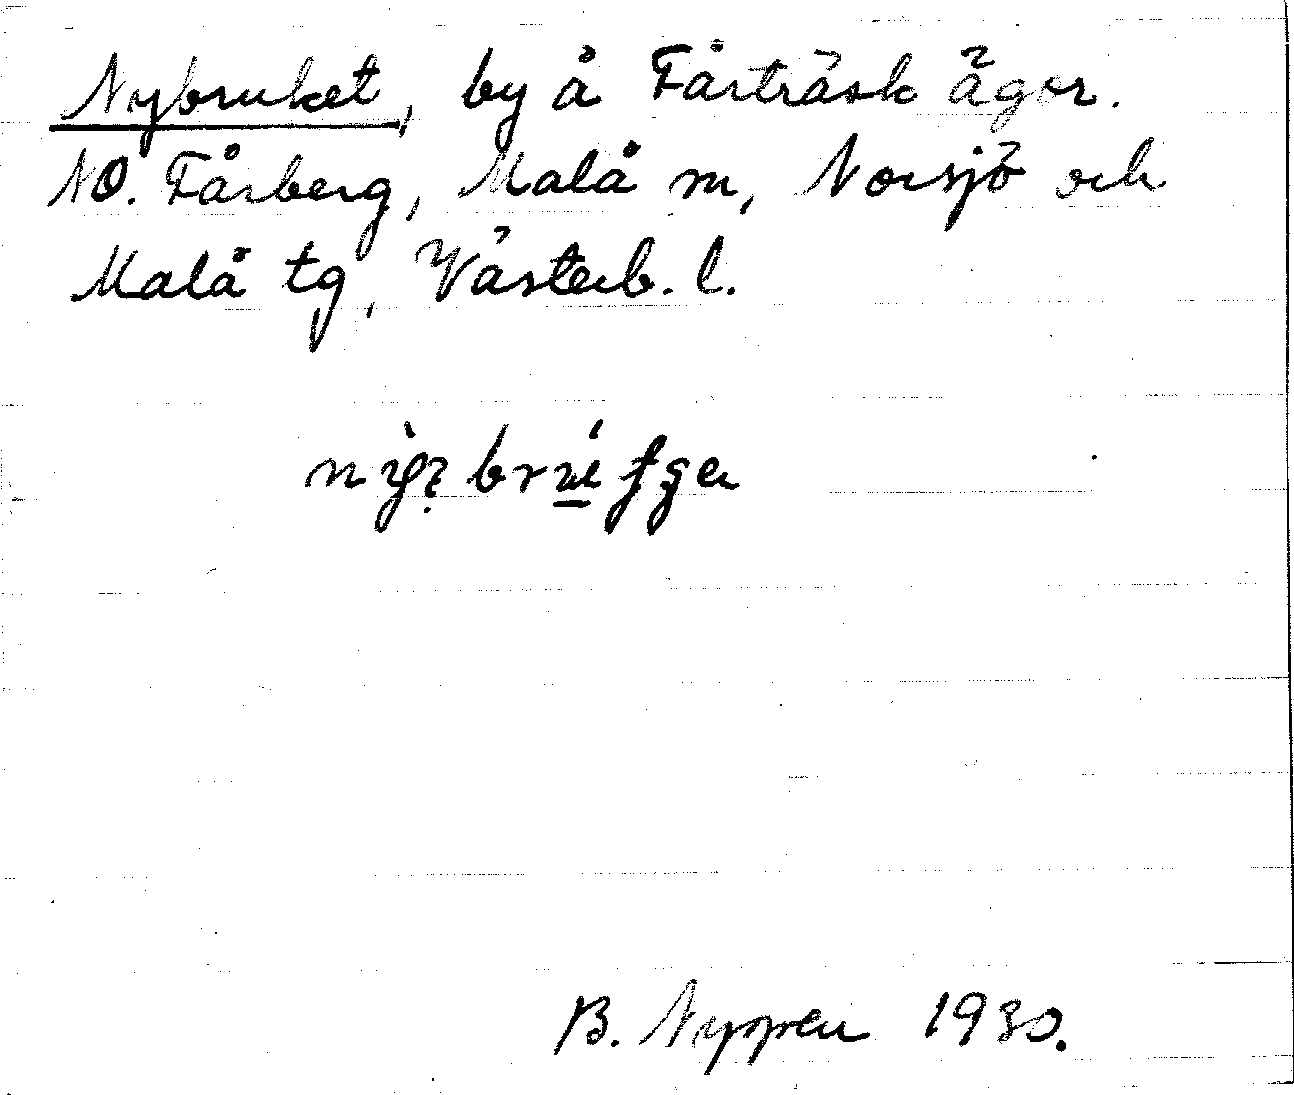 Nybruket, by å Fårträsk ägor.
NO. Fårberg, Malå m, Norsjö och
Malå tg, Västerb. l.
B. Nyppen 1930.